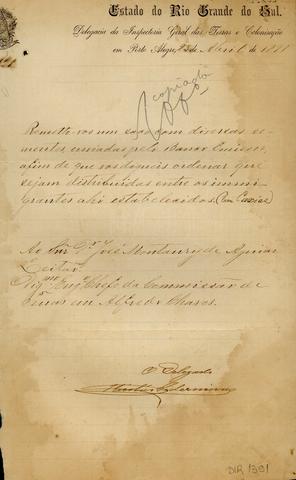 Estado do Rio Grande do Sul.
Delegacia da Inspectoria Geral das Terras e Colonisação
em Porto Alegre, de Abril de 18
copiado
Remetto-vos um caixão com diversas se-
mentes, enviadas pelo
afim de que vos digneis ordenar que
sejam distribuidas entre os immi-
grantes ahi estabelecidos. (em Caxias)
Ao Snr. José Montaury de Aguiar
Leitão.
Dig.mo Eng. Chefe da Commissão de
Terras em Alfredo Chaves.
O Delegado
DIR 1391